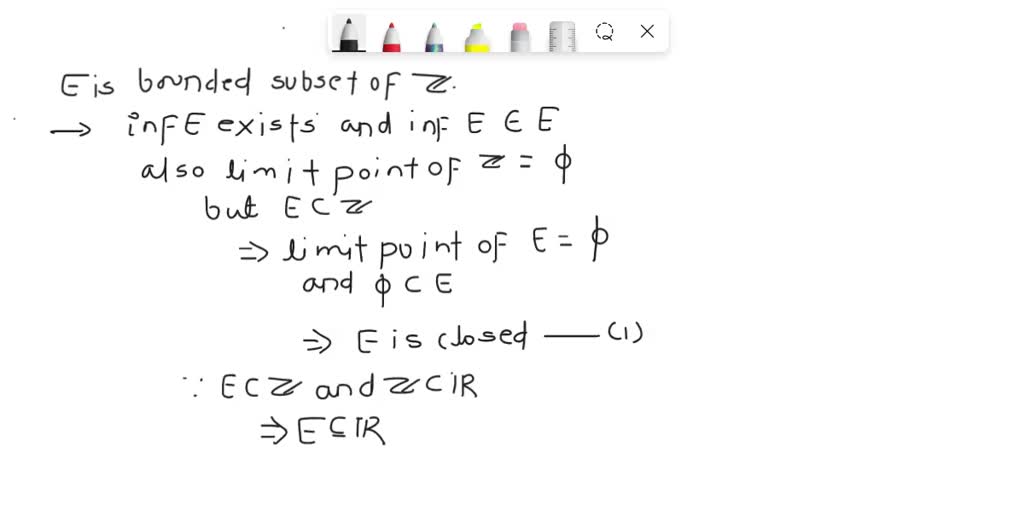 E is bounded subset of ℤ.
→ inf E exists and inf E ∈ E
also limit point of ℤ = ϕ
but E ⊂ ℤ
⇒ limit point of E = ϕ
and ϕ ⊂ E
⇒ E is closed —— (1)
∵ E ⊂ ℤ and ℤ ⊂ ℝ
⇒ E ⊆ ℝ